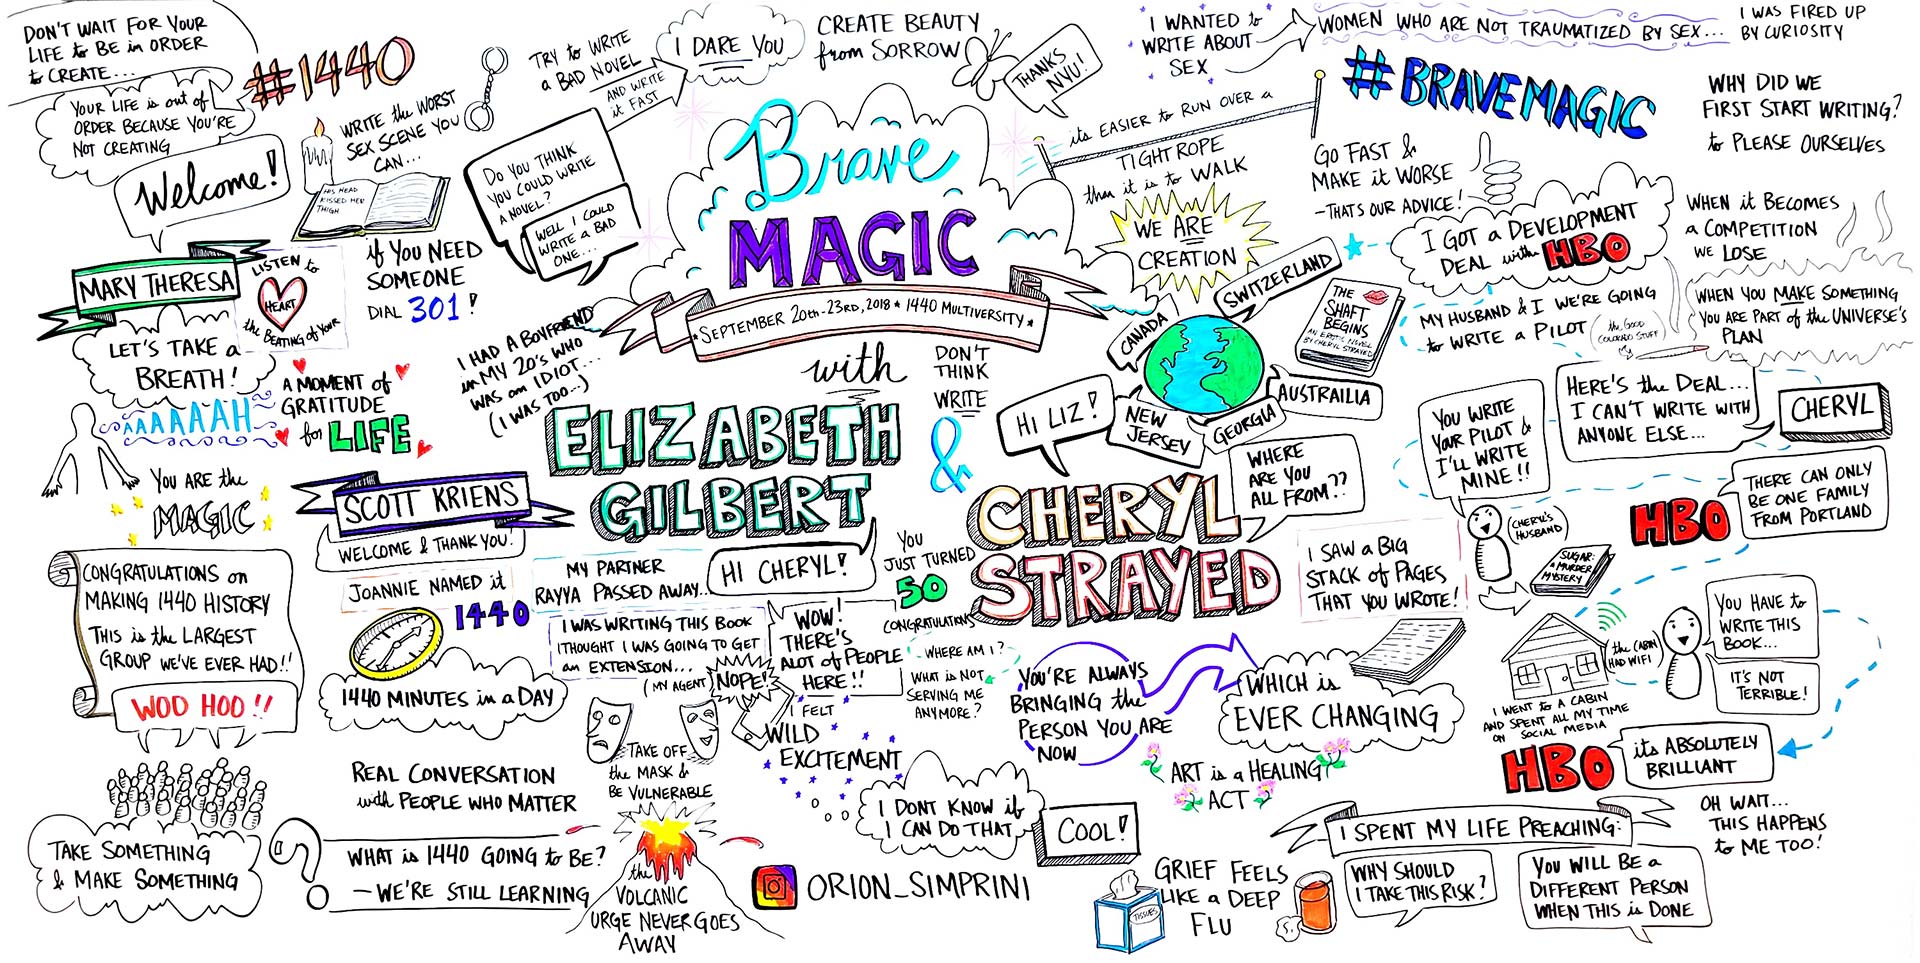 DON'T WAIT FOR YOUR
LIFE to BE in ORDER
to CREATE...
YOUR LIFE is out of
ORDER BECAUSE YOU'RE
NOT CREATING
#1440
Welcome!
MARY THERESA
LISTEN to
HEART
the BEATING of YOUR
LET'S TAKE a
BREATH!
AAAAAH
A MOMENT of
GRATITUDE
for LIFE
YOU ARE the
MAGIC
WRITE the WORST
SEX SCENE YOU
CAN...
HIS HEAD
KISSED HER
THIGH
if YOU NEED
SOMEONE
DIAL 301!
TRY to WRITE
a BAD NOVEL
AND WRITE
it FAST
I DARE YOU
DO YOU THINK
YOU COULD WRITE
A NOVEL?
WELL I COULD
WRITE a BAD
ONE...
CREATE BEAUTY
from SORROW
THANKS
NYU!
Brave
MAGIC
SEPTEMBER 20th-23RD, 2018 * 1440 MULTIVERSITY *
with
ELIZABETH
GILBERT
&
CHERYL
STRAYED
I HAD A BOYFRIEND
in MY 20's WHO
WAS an IDIOT...
(I WAS TOO...)
DON'T
THINK
WRITE
I WANTED to
WRITE ABOUT
SEX
WOMEN WHO ARE NOT TRAUMATIZED BY SEX...
I WAS FIRED UP
BY CURIOSITY
its EASIER to RUN OVER a
TIGHTROPE
then it is to WALK
#BRAVEMAGIC
WHY DID WE
FIRST START WRITING?
to PLEASE OURSELVES
GO FAST &
MAKE it WORSE
-THATS OUR ADVICE!
WE ARE
CREATION
SWITZERLAND
CANADA
NEW
JERSEY
GEORGIA
AUSTRAILIA
HI LIZ!
WHERE
ARE YOU
ALL FROM??
THE
SHAFT
BEGINS
AN EROTIC NOVEL
BY CHERYL STRAYED
I GOT a DEVELOPMENT
DEAL with HBO
WHEN it BECOMES
a COMPETITION
WE LOSE
WHEN YOU MAKE SOMETHING
YOU ARE PART of the UNIVERSE'S
PLAN
MY HUSBAND & I WE'RE GOING
to WRITE a PILOT
(the GOOD
COLORADO STUFF)
HERE'S the DEAL...
I CAN'T WRITE WITH
ANYONE ELSE...
CHERYL
YOU WRITE
YOUR PILOT &
I'LL WRITE
MINE!!
(CHERYL'S
HUSBAND)
HBO
THERE CAN ONLY
BE ONE FAMILY
FROM PORTLAND
SUGAR:
a MURDER
MYSTERY
I SAW a BIG
STACK of PAGES
THAT YOU WROTE!
(the CABIN
HAD WIFI)
I WENT to a CABIN
AND SPENT ALL MY TIME
ON SOCIAL MEDIA
YOU HAVE to
WRITE THIS
BOOK...
IT'S NOT
TERRIBLE!
HBO
its ABSOLUTELY
BRILLIANT
OH WAIT...
THIS HAPPENS
to ME TOO!
SCOTT KRIENS
WELCOME & THANK YOU!
JOANNIE NAMED it
1440
1440 MINUTES in a DAY
CONGRATULATIONS on
MAKING 1440 HISTORY
THIS is the LARGEST
GROUP WE'VE EVER HAD!!
WOO HOO!!
TAKE SOMETHING
& MAKE SOMETHING
REAL CONVERSATION
with PEOPLE WHO MATTER
WHAT is 1440 GOING to BE?
- WE'RE STILL LEARNING
MY PARTNER
RAYYA PASSED AWAY...
I WAS WRITING THIS BOOK
I THOUGHT I WAS GOING to GET
an EXTENSION...
(MY AGENT)
NOPE!
HI CHERYL!
YOU
JUST TURNED
50
CONGRATULATIONS
WOW!
THERE'S
ALOT of PEOPLE
HERE!!
I FELT
WILD
EXCITEMENT
WHERE AM I?
WHAT is NOT
SERVING ME
ANYMORE?
TAKE OFF
the MASK &
BE VULNERABLE
the
VOLCANIC
URGE NEVER GOES
AWAY
I DONT KNOW if
I CAN DO THAT
COOL!
ORION_SIMPRINI
YOU'RE ALWAYS
BRINGING the
PERSON YOU ARE
NOW
WHICH is
EVER CHANGING
ART is a HEALING
ACT
GRIEF FEELS
LIKE a DEEP
FLU
TISSUES
I SPENT MY LIFE PREACHING:
WHY SHOULD
I TAKE THIS RISK?
YOU WILL BE a
DIFFERENT PERSON
WHEN THIS is DONE